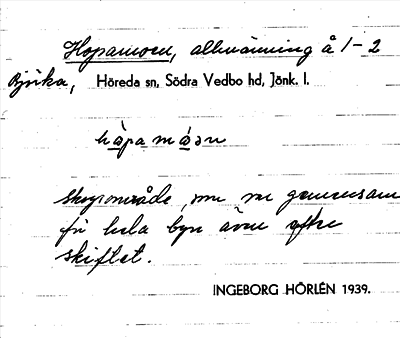 Hopamoen, allmänning å 1-2
Björka, Höreda sn, Södra Vedbo hd, Jönk. l.
håpa måən
skogsområde, som var gemensam
för hela byn även efter
skiftet.
INGEBORG HÖRLÉN 1939.